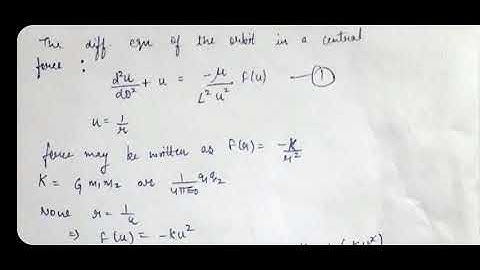 The diff. eqn of the orbit in a central
force :
d²u/dθ² + u = -μ/L²u² f(u) — ①
u = 1/r
force may be written as f(r) = -K/r²
K = G m₁m₂ or 1/4πε₀ q₁q₂
None r = 1/u
⇒ f(u) = -ku²